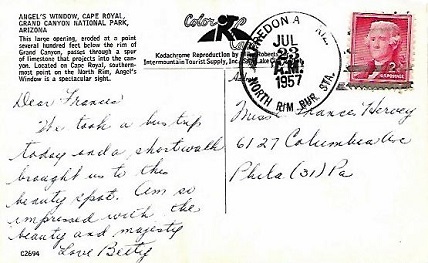 ANGEL'S WINDOW, CAPE ROYAL,
GRAND CANYON NATIONAL PARK,
ARIZONA
This large opening, eroded at a point
several hundred feet below the rim of
Grand Canyon, passes through a spur
of limestone that projects into the can-
yon. Located on Cape Royal, southern-
most point on the North Rim, Angel's
Window is a spectacular sight.
Color
Kodachrome Reproduction by Mike Roberts
Intermountain Tourist Supply, Inc., Salt Lake
FREDONIA ARIZ.
JUL
23
A.M.
1957
NORTH RIM RUR. STA.
2¢
U.S. POSTAGE
Dear Frances
We took a bus trip
today and a short walk
brought us to this
beauty spot. Am so
impressed with the
beauty and majesty
Love Betty
Miss Frances Hervey
6127 Columbia Ave
Phila (31) Pa
C2694